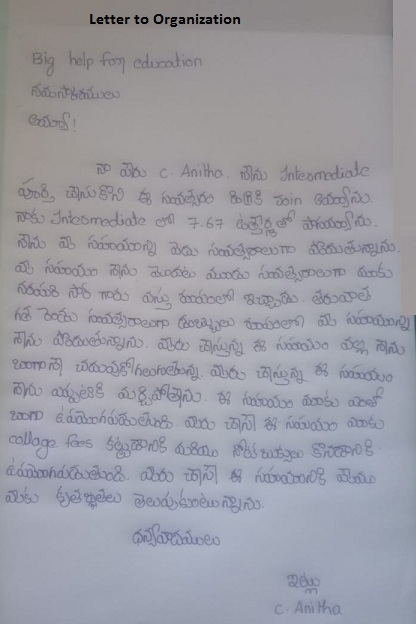 Letter to Organization
Big help for education
నమస్కారములు
అయ్యా!
నా పేరు C. Anitha. నేను Intermediate
పూర్తి చేసుకొని ఈ సంవత్సరం కి Join అయ్యాను.
నాకు Intermediate లో 7.67 ఉత్తీర్ణతతో పాసయ్యాను.
నేను మీ సహాయాన్ని ఐదు సంవత్సరాలుగా పొందుతున్నాను.
మీ సహాయం నేను మొదట మూడు సంవత్సరాలుగా మాకు
సార్ గారు వస్తు రూపంలో ఇచ్చారు. తరువాత
గత రెండు సంవత్సరాలుగా డబ్బులు రూపంలో మీ సహాయాన్ని
నేను పొందుతున్నాను. మీరు చేస్తున్న ఈ సహాయం వల్ల నేను
బాగానే చదువుకోగలుగుతున్నా. మీరు చేస్తున్న ఈ సహాయం
నేను ఎప్పటికి మర్చిపోలేను. ఈ సహాయం మాకు ఎంతో
బాగా ఉపయోగపడుతుంది. మీరు చేసే ఈ సహాయం మాకు
collage fees కట్టడానికి మరియు నోటుబుక్కులు కొనడానికి
ఉపయోగపడుతుంది. మీరు చేసే ఈ సహాయానికి మేము
మీకు కృతజ్ఞతలు తెలుపుకుంటున్నాను.
ధన్యవాదములు
ఇట్లు
C. Anitha